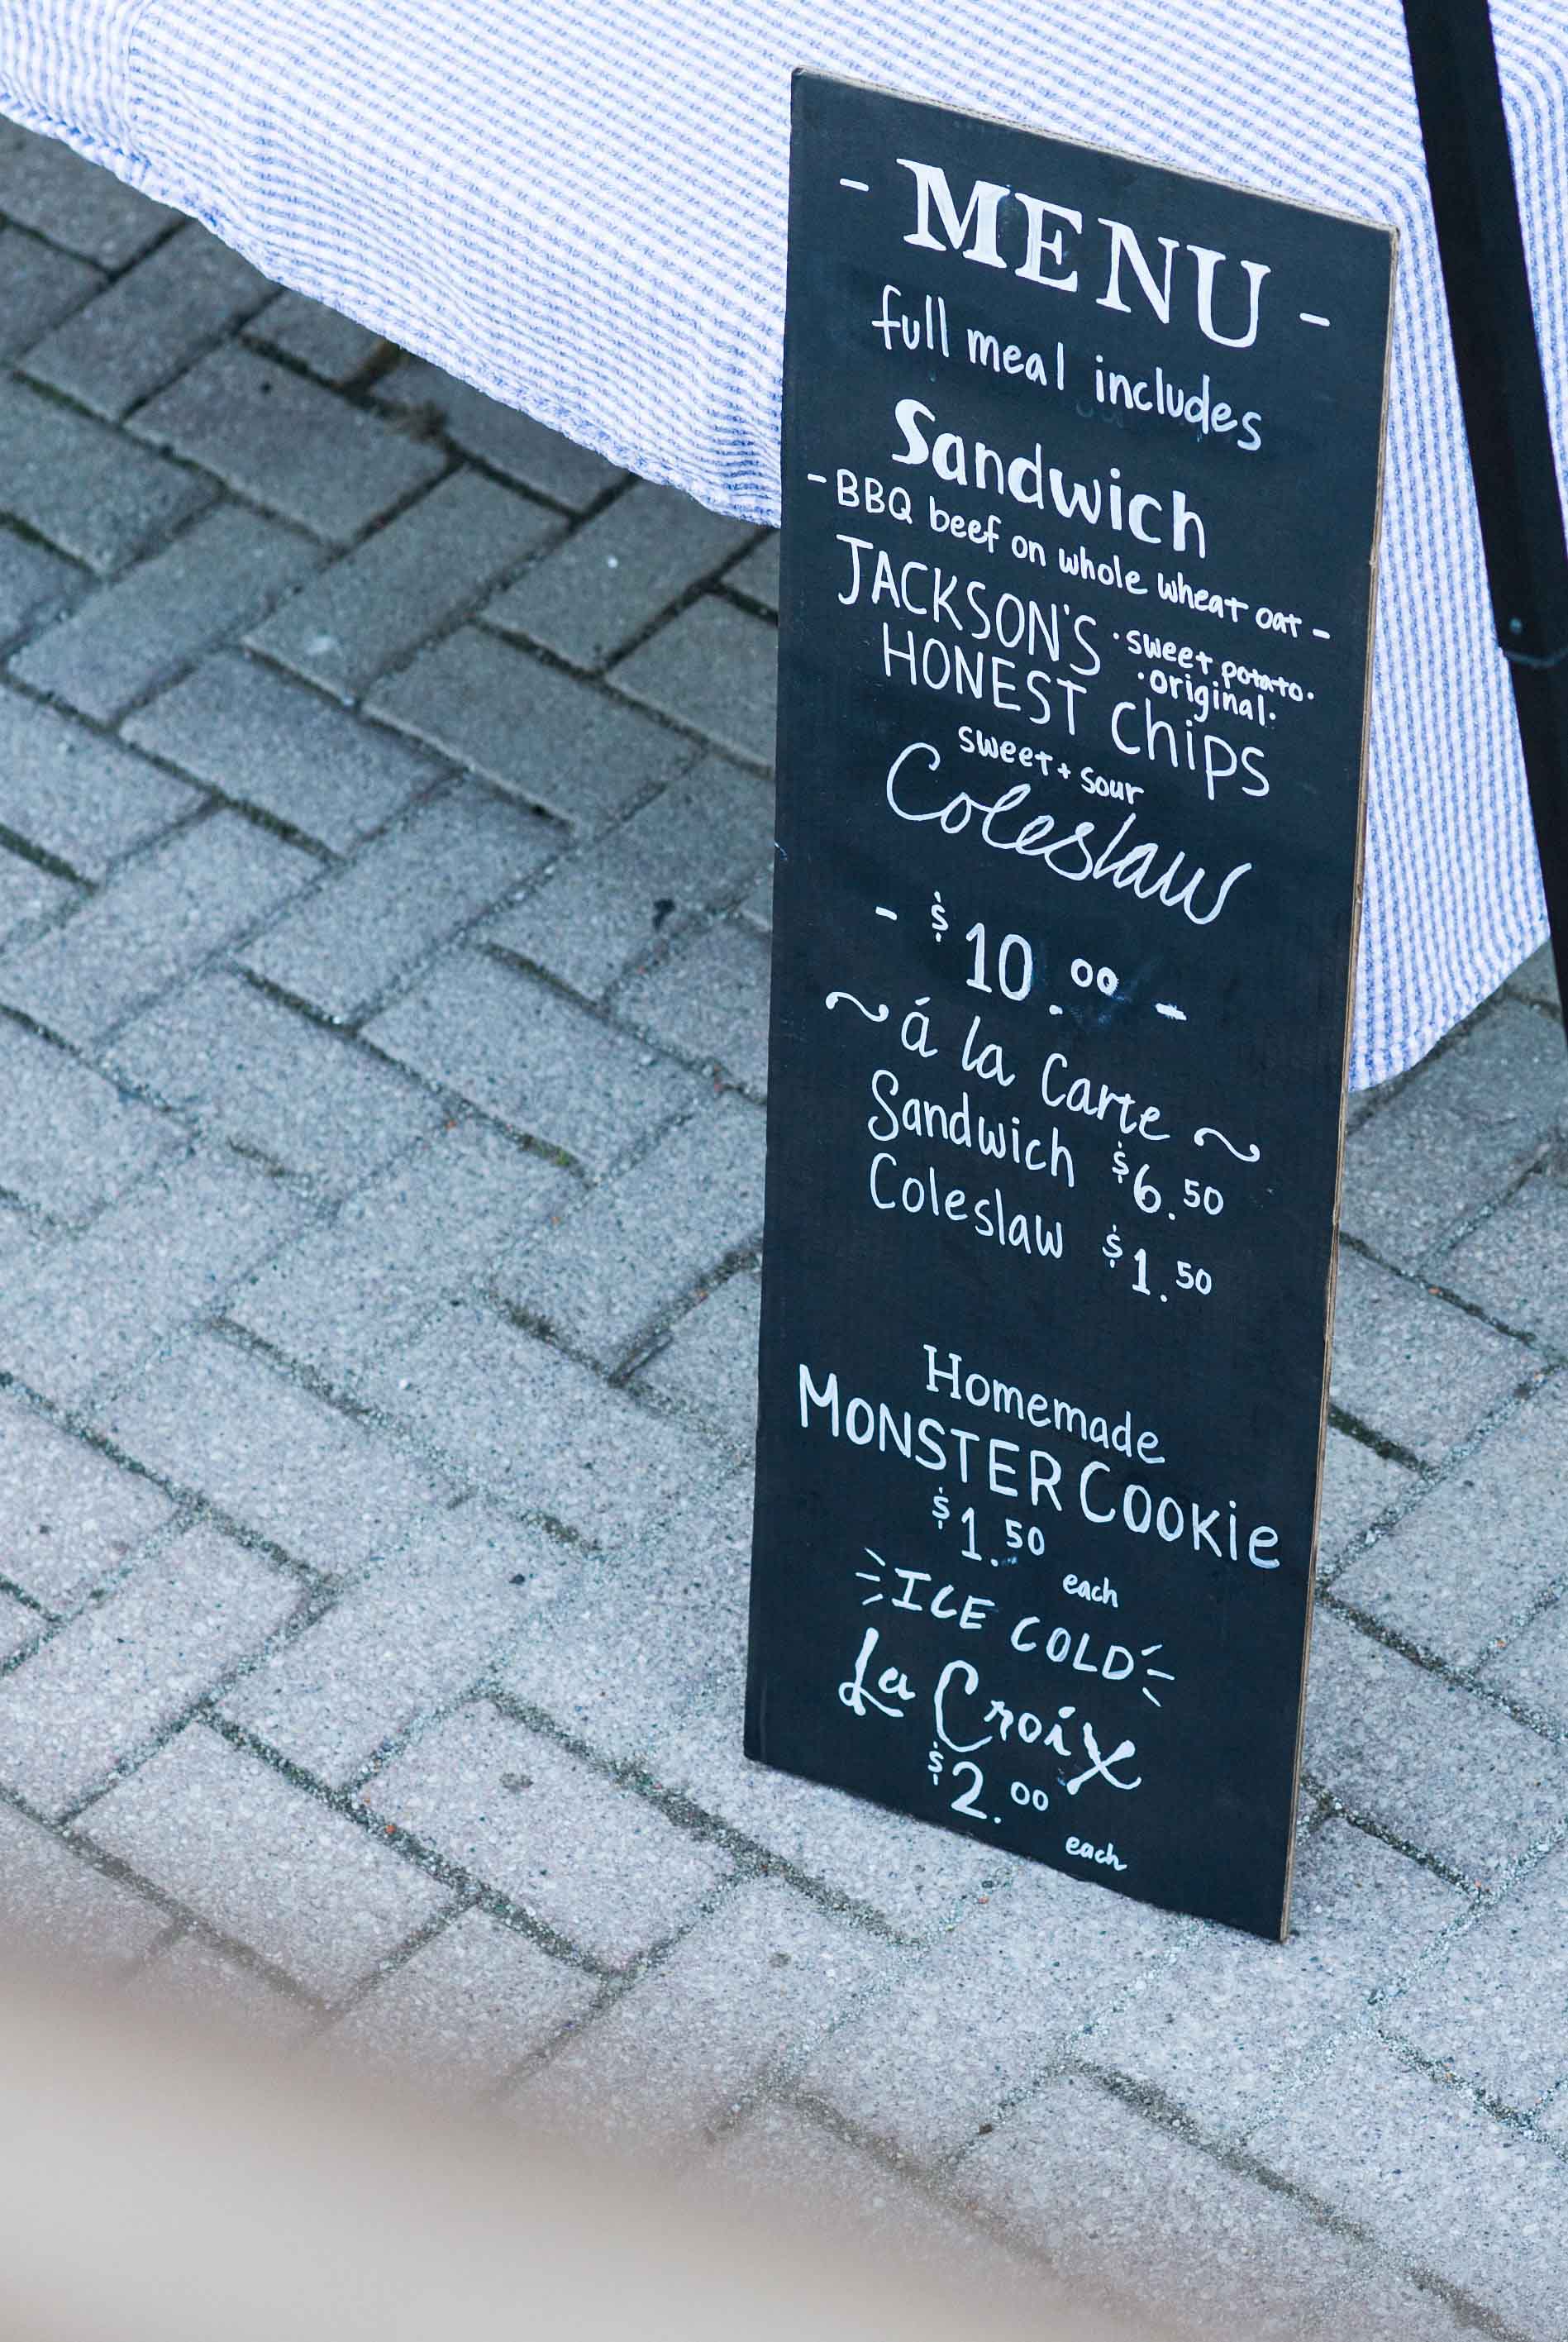 - MENU -
full meal includes
Sandwich
- BBQ beef on whole wheat oat -
JACKSON'S · sweet potato ·
· original ·
HONEST Chips
sweet + sour
Coleslaw
- $10.00 -
~ á la Carte ~
Sandwich $6.50
Coleslaw $1.50
Homemade
MONSTER COOKie
$1.50 each
ICE COLD
La Croix
$2.00 each